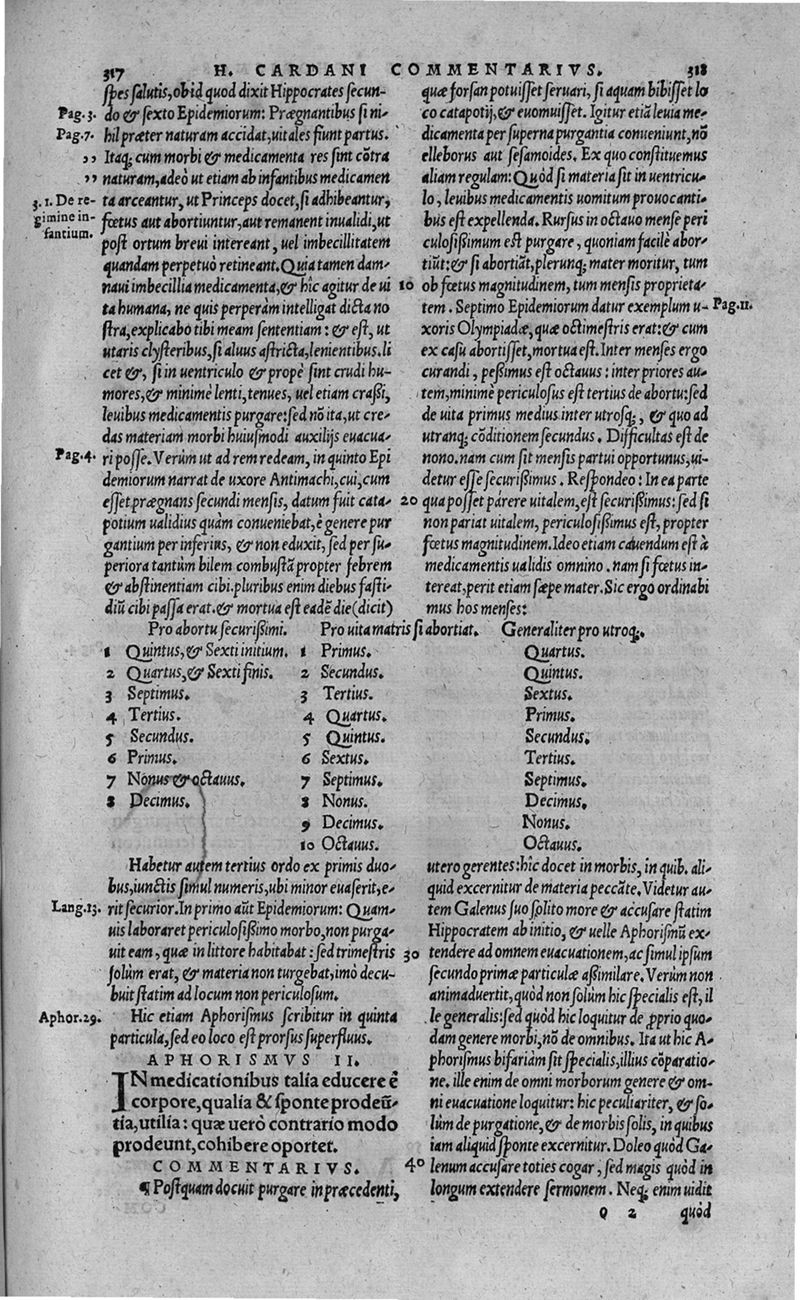 317 H. CARDANI COMMENTARIVS. 318
spes salutis, ob id quod dixit Hippocrates secun-
Pag. 3. do & sexto Epidemiorum: Prægnantibus si ni-
Pag. 7. hil præter naturam accidat, uitales fiunt partus.
,, Itaq; cum morbi & medicamenta res sint cōtra
,, naturam, adeò ut etiam ab infantibus medicamen
3. 1. De re- ta arceantur, ut Princeps docet, si adhibeantur,
gimine in- fœtus aut abortiuntur, aut remanent inualidi, ut
fantium. post ortum breui intereant, uel imbecillitatem
quandam perpetuò retineant. Quia tamen dam-
naui imbecillia medicamenta, & hîc agitur de ui
ta humana, ne quis perperàm intelligat dicta no
stra, explicabo tibi meam sententiam: & est, ut
utaris clysteribus, si aluus astricta, lenientibus. li
cet &, si in uentriculo & propè sint crudi hu-
mores, & minimè lenti, tenues, uel etiam crassi,
leuibus medicamentis purgare: sed nō ita, ut cre-
das materiam morbi huiusmodi auxilijs euacua-
Pag. 4. ri posse. Verùm ut ad rem redeam, in quinto Epi
demiorum narrat de uxore Antimachi, cui, cum
esset prægnans secundi mensis, datum fuit cata-
potium ualidius quàm conueniebat, è genere pur
gantium per inferius, & non eduxit, sed per su-
periora tantùm bilem combustā propter febrem
& abstinentiam cibi. pluribus enim diebus fasti-
diū cibi passa erat. & mortua est eadē die (dicit)
quæ forsan potuisset seruari, si aquam bibisset lo
co catapotij, & euomuisset. Igitur etiā leuia me-
dicamenta per superna purgantia conueniunt, nō
elleborus aut sesamoides. Ex quo constituemus
aliam regulam: Quòd si materia sit in uentricu-
lo, leuibus medicamentis uomitum prouocanti-
bus est expellenda. Rursus in octauo mense peri
culosissimum est purgare, quoniam facilè abor-
tiūt: & si abortiāt, plerunq; mater moritur, tum
10 ob fœtus magnitudinem, tum mensis proprieta-
tem. Septimo Epidemiorum datur exemplum u- Pag. 11.
xoris Olympiadæ, quæ octimestris erat: & cum
ex casu abortisset, mortua est. Inter menses ergo
curandi, pessimus est octauus: inter priores au-
tem, minimè periculosus est tertius de abortu: sed
de uita primus medius inter utrosq;, & quo ad
utranq; cōditionem secundus. Difficultas est de
nono. nam cum sit mensis partui opportunus, ui-
detur esse securissimus. Respondeo: In ea parte
20 qua posset parere uitalem, est securissimus: sed si
non pariat uitalem, periculosissimus est, propter
fœtus magnitudinem. Ideo etiam cauendum est à
medicamentis ualidis omnino. nam si fœtus in-
tereat, perit etiam sæpe mater. Sic ergo ordinabi
mus hos menses:
Pro abortu securissimi. Pro uita matris si abortiat. Generaliter pro utroq;.
1 Quintus, & Sexti initium. 1 Primus. Quartus.
2 Quartus, & Sexti finis. 2 Secundus. Quintus.
3 Septimus. 3 Tertius. Sextus.
4 Tertius. 4 Quartus. Primus.
5 Secundus. 5 Quintus. Secundus.
6 Primus. 6 Sextus. Tertius.
7 Nonus & octauus. 7 Septimus. Septimus.
8 Decimus. 8 Nonus. Decimus.
9 Decimus. Nonus.
10 Octauus. Octauus.
Habetur autem tertius ordo ex primis duo-
bus, iunctis simul numeris, ubi minor euaserit, e-
Lang. 13. rit securior. In primo aūt Epidemiorum: Quam-
uis laboraret periculosissimo morbo, non purga-
uit eam, quæ in littore habitabat: sed trimestris
solùm erat, & materia non turgebat, imò decu-
buit statim ad locum non periculosum.
Aphor. 29. Hic etiam Aphorismus scribitur in quinta
particula, sed eo loco est prorsus superfluus.
APHORISMVS II.
IN medicationibus talia educere è
corpore, qualia & sponte prodeū-
tia, utilia: quæ uerò contrario modo
prodeunt, cohibere oportet.
COMMENTARIVS.
¶ Postquam docuit purgare in præcedenti,
utero gerentes: hîc docet in morbis, in quib. ali-
quid excernitur de materia peccāte. Videtur au-
tem Galenus suo solito more & accusare statim
Hippocratem ab initio, & uelle Aphorismū ex-
30 tendere ad omnem euacuationem, ac simul ipsum
secundo primæ particulæ assimilare. Verùm non
animaduertit, quòd non solùm hic specialis est, il
le generalis: sed quòd hic loquitur de proprio quo-
dam genere morbi, nō de omnibus. Ita ut hic A-
phorismus bifariàm sit specialis, illius cōparatio-
ne. ille enim de omni morborum genere & om-
ni euacuatione loquitur: hic peculiariter, & so-
lùm de purgatione, & de morbis solis, in quibus
iam aliquid sponte excernitur. Doleo quòd Ga-
40 lenum accusare toties cogar, sed magis quòd in
longum extendere sermonem. Neq; enim uidit
Q 2 quòd